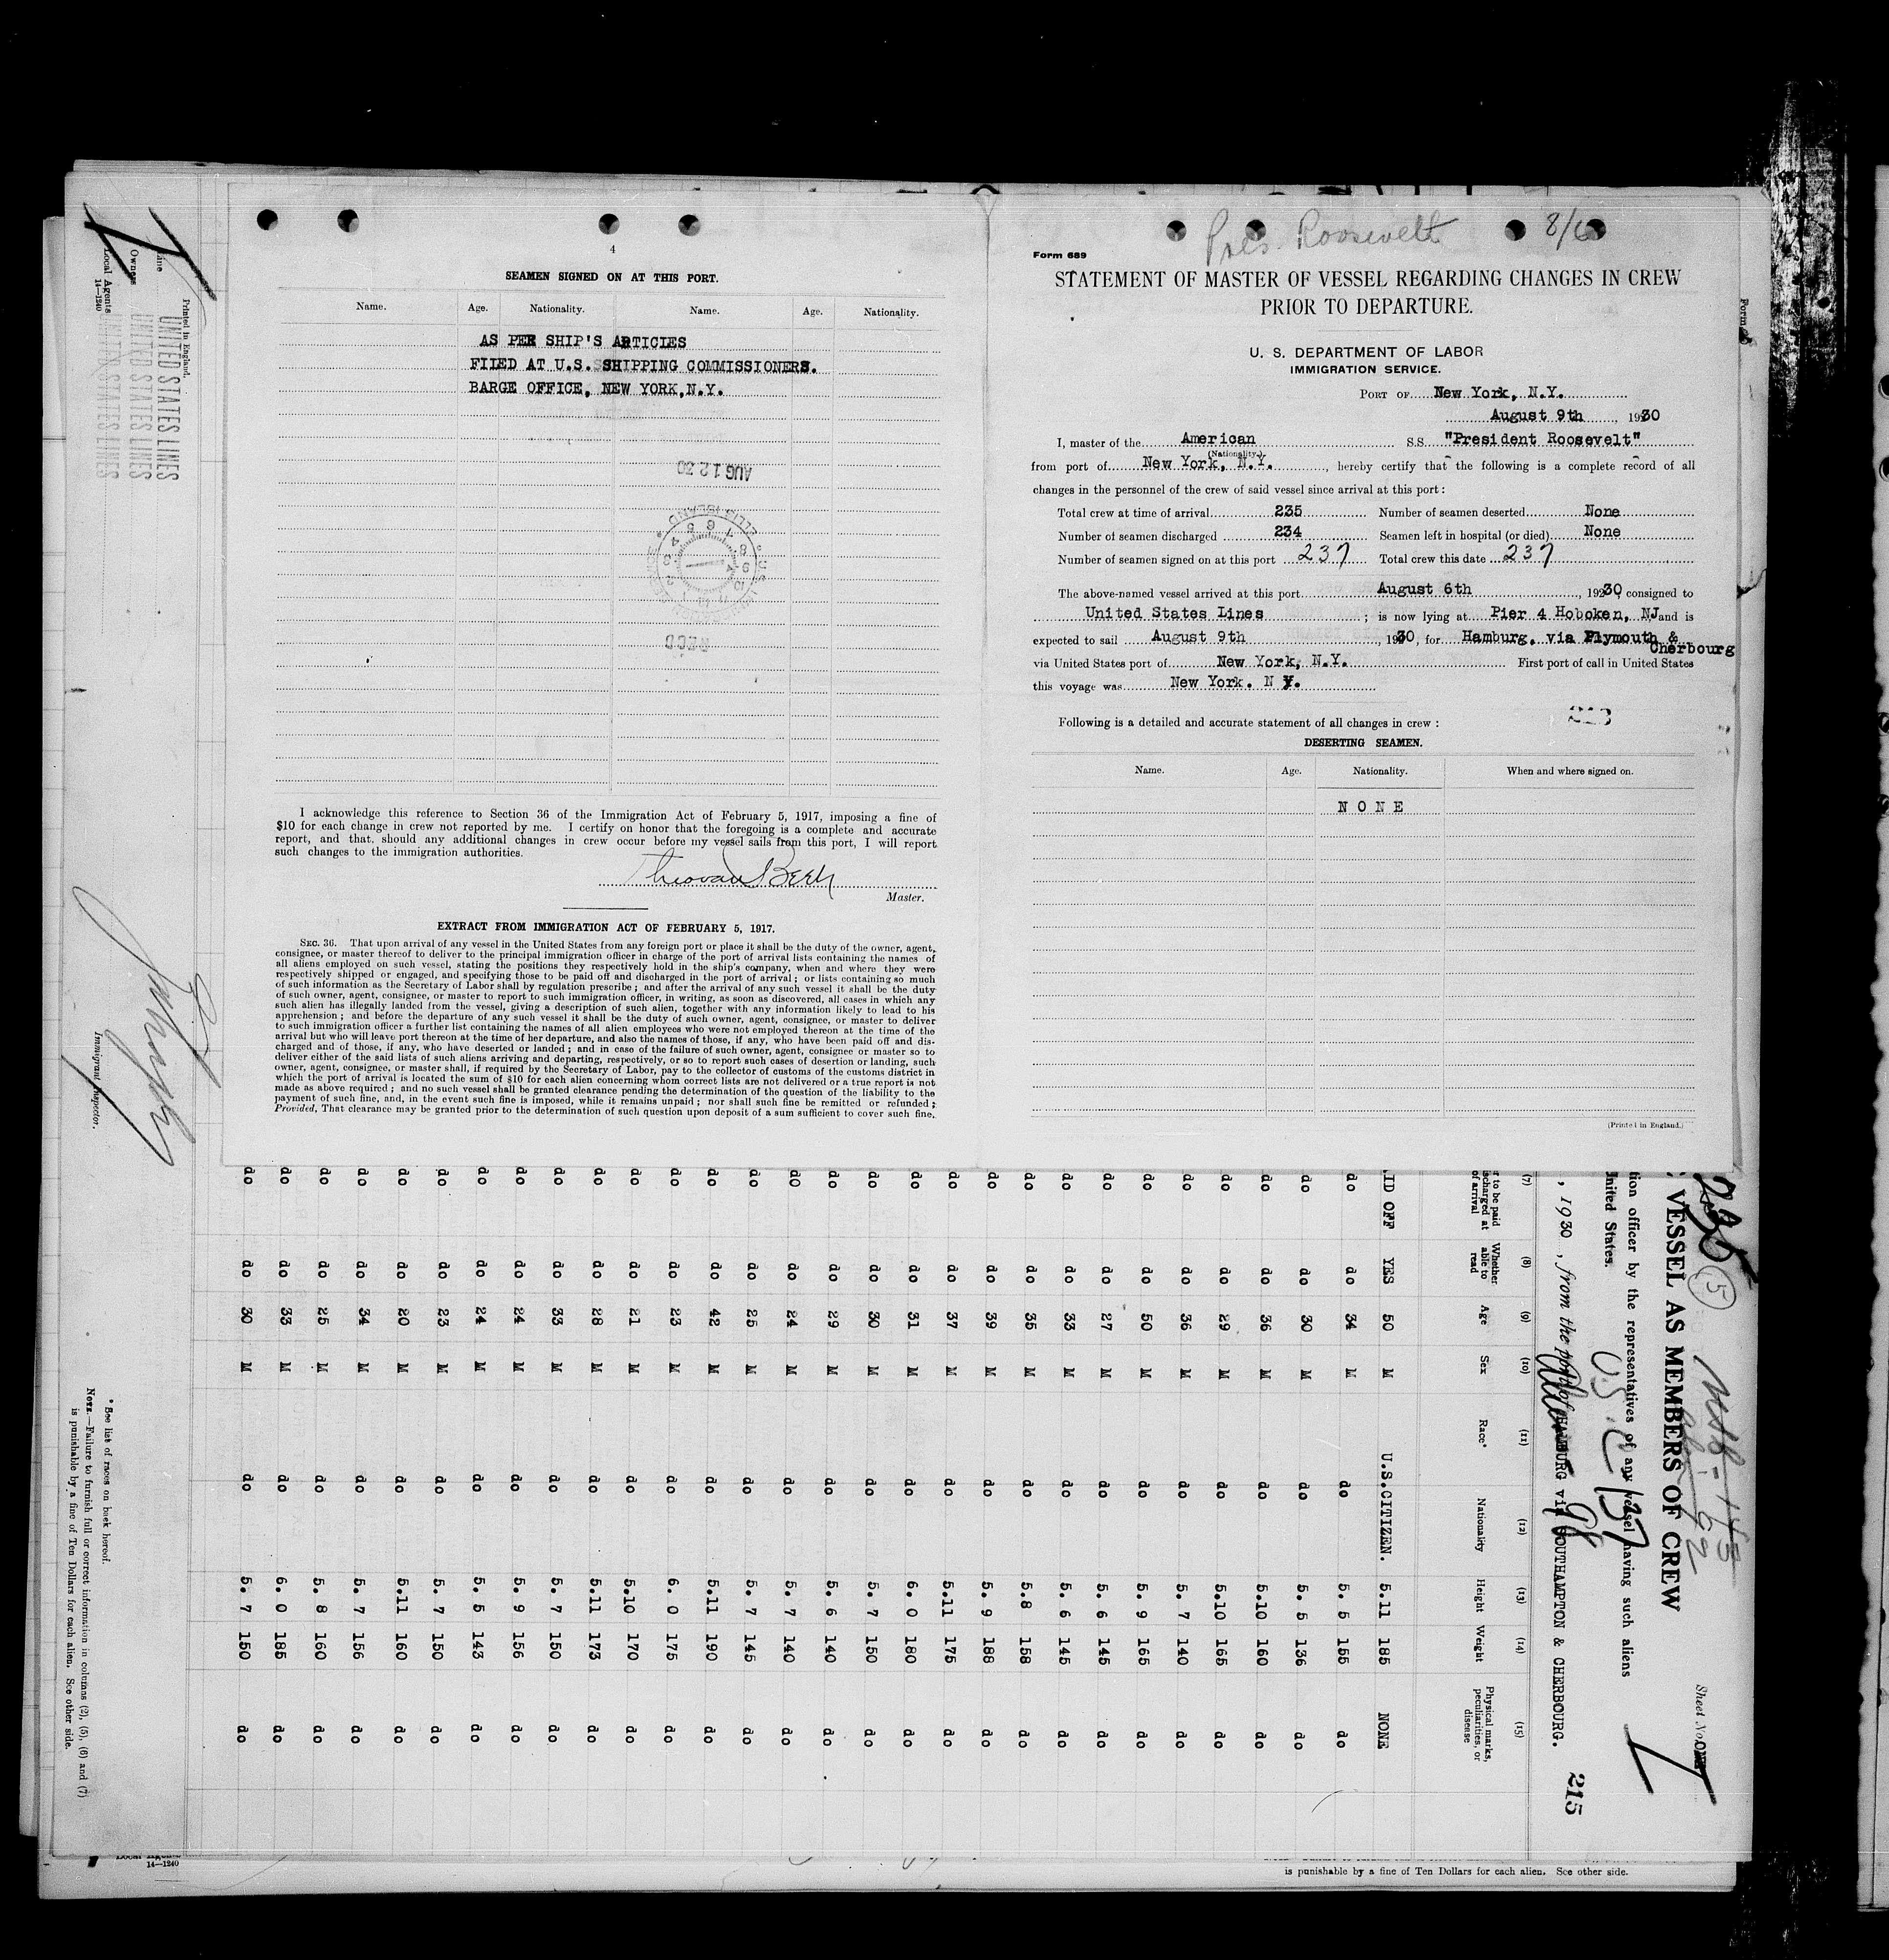 4
SEAMEN SIGNED ON AT THIS PORT.
Name. Age. Nationality. Name. Age. Nationality.
AS PER SHIP'S ARTICLES
FILED AT U.S. SHIPPING COMMISSIONERS.
BARGE OFFICE, NEW YORK,N.Y.
AUG 12 30
ELLIS ISLAND
REC'D
I acknowledge this reference to Section 36 of the Immigration Act of February 5, 1917, imposing a fine of
$10 for each change in crew not reported by me. I certify on honor that the foregoing is a complete and accurate
report, and that, should any additional changes in crew occur before my vessel sails from this port, I will report
such changes to the immigration authorities.
Theo van Beek
Master.
EXTRACT FROM IMMIGRATION ACT OF FEBRUARY 5, 1917.
SEC. 36. That upon arrival of any vessel in the United States from any foreign port or place it shall be the duty of the owner, agent,
consignee, or master thereof to deliver to the principal immigration officer in charge of the port of arrival lists containing the names of
all aliens employed on such vessel, stating the positions they respectively hold in the ship's company, when and where they were
respectively shipped or engaged, and specifying those to be paid off and discharged in the port of arrival; or lists containing so much
of such information as the Secretary of Labor shall by regulation prescribe; and after the arrival of any such vessel it shall be the duty
of such owner, agent, consignee, or master to report to such immigration officer, in writing, as soon as discovered, all cases in which any
such alien has illegally landed from the vessel, giving a description of such alien, together with any information likely to lead to his
apprehension; and before the departure of any such vessel it shall be the duty of such owner, agent, consignee, or master to deliver
to such immigration officer a further list containing the names of all alien employees who were not employed thereon at the time of the
arrival but who will leave port thereon at the time of her departure, and also the names of those, if any, who have been paid off and dis-
charged and of those, if any, who have deserted or landed; and in case of the failure of such owner, agent, consignee or master so to
deliver either of the said lists of such aliens arriving and departing, respectively, or so to report such cases of desertion or landing, such
owner, agent, consignee, or master shall, if required by the Secretary of Labor, pay to the collector of customs of the customs district in
which the port of arrival is located the sum of $10 for each alien concerning whom correct lists are not delivered or a true report is not
made as above required; and no such vessel shall be granted clearance pending the determination of the question of the liability to the
payment of such fine, and, in the event such fine is imposed, while it remains unpaid; nor shall such fine be remitted or refunded;
Provided, That clearance may be granted prior to the determination of such question upon deposit of a sum sufficient to cover such fine.
Pres. Roosevelt 8/6
Form 689
STATEMENT OF MASTER OF VESSEL REGARDING CHANGES IN CREW
PRIOR TO DEPARTURE.
U. S. DEPARTMENT OF LABOR
IMMIGRATION SERVICE.
PORT OF New York, N.Y.
August 9th, 1930
I, master of the American S.S. "President Roosevelt"
(Nationality.)
from port of New York, N.Y., hereby certify that the following is a complete record of all
changes in the personnel of the crew of said vessel since arrival at this port:
Total crew at time of arrival 235 Number of seamen deserted None
Number of seamen discharged 234 Seamen left in hospital (or died) None
Number of seamen signed on at this port 237 Total crew this date 237
The above-named vessel arrived at this port August 6th, 19230, consigned to
United States Lines; is now lying at Pier 4 Hoboken, NJ and is
expected to sail August 9th, 1930, for Hamburg. via Plymouth &
Cherbourg
via United States port of New York, N.Y. First port of call in United States
this voyage was New York. N Y.
Following is a detailed and accurate statement of all changes in crew:
DESERTING SEAMEN.
Name. Age. Nationality. When and where signed on.
NONE
(Printed in England.)
235 (5)
Sheet No. ONE
VESSEL AS MEMBERS OF CREW
tion officer by the representatives of any vessel having such aliens
nited States.
U.S.C 137
, 1930, from the port of HAMBURG via SOUTHAMPTON & CHERBOURG.
98
215
(7) (8) (9) (10) (11) (12) (13) (14) (15)
r to be paid
scharged at
of arrival
Whether
able to
read
Age Sex Race* Nationality Height Weight
Physical marks,
peculiarities, or
disease
ID OFF YES 50 M U.S.CITIZEN. 5.11 185 NONE
do do 34 M do 5. 5 155 do
do do 30 M do 5. 5 136 do
do do 36 M do 5.10 160 do
do do 29 M do 5.10 165 do
do do 36 M do 5. 7 140 do
do do 50 M do 5. 9 165 do
do do 27 M do 5. 6 145 do
do do 33 M do 5. 6 145 do
do do 35 M do 5.8 158 do
do do 39 M do 5. 9 188 do
do do 37 M do 5.11 175 do
do do 31 M do 6. 0 180 do
do do 30 M do 5. 7 150 do
do do 29 M do 5. 6 140 do
do do 24 M do 5. 7 140 do
do do 25 M do 5. 7 145 do
do do 42 M do 5.11 190 do
do do 23 M do 6. 0 175 do
do do 21 M do 5.10 170 do
do do 28 M do 5.11 173 do
do do 33 M do 5. 7 150 do
do do 24 M do 5. 9 156 do
do do 24 M do 5. 5 143 do
do do 23 M do 5. 7 150 do
do do 20 M do 5.11 160 do
do do 34 M do 5. 7 156 do
do do 25 M do 5. 8 160 do
do do 33 M do 6. 0 185 do
do do 30 M do 5. 7 150 do
Printed in England.
Line UNITED STATES LINES
Owners UNITED STATES LINES
Local Agents UNITED STATES LINES
14—1240
Immigrant Inspector.
* See list of races on back hereof.
NOTE.—Failure to furnish full or correct information in columns (2), (5), (6) and (7)
is punishable by a fine of Ten Dollars for each alien. See other side.
14—1240
is punishable by a fine of Ten Dollars for each alien. See other side.